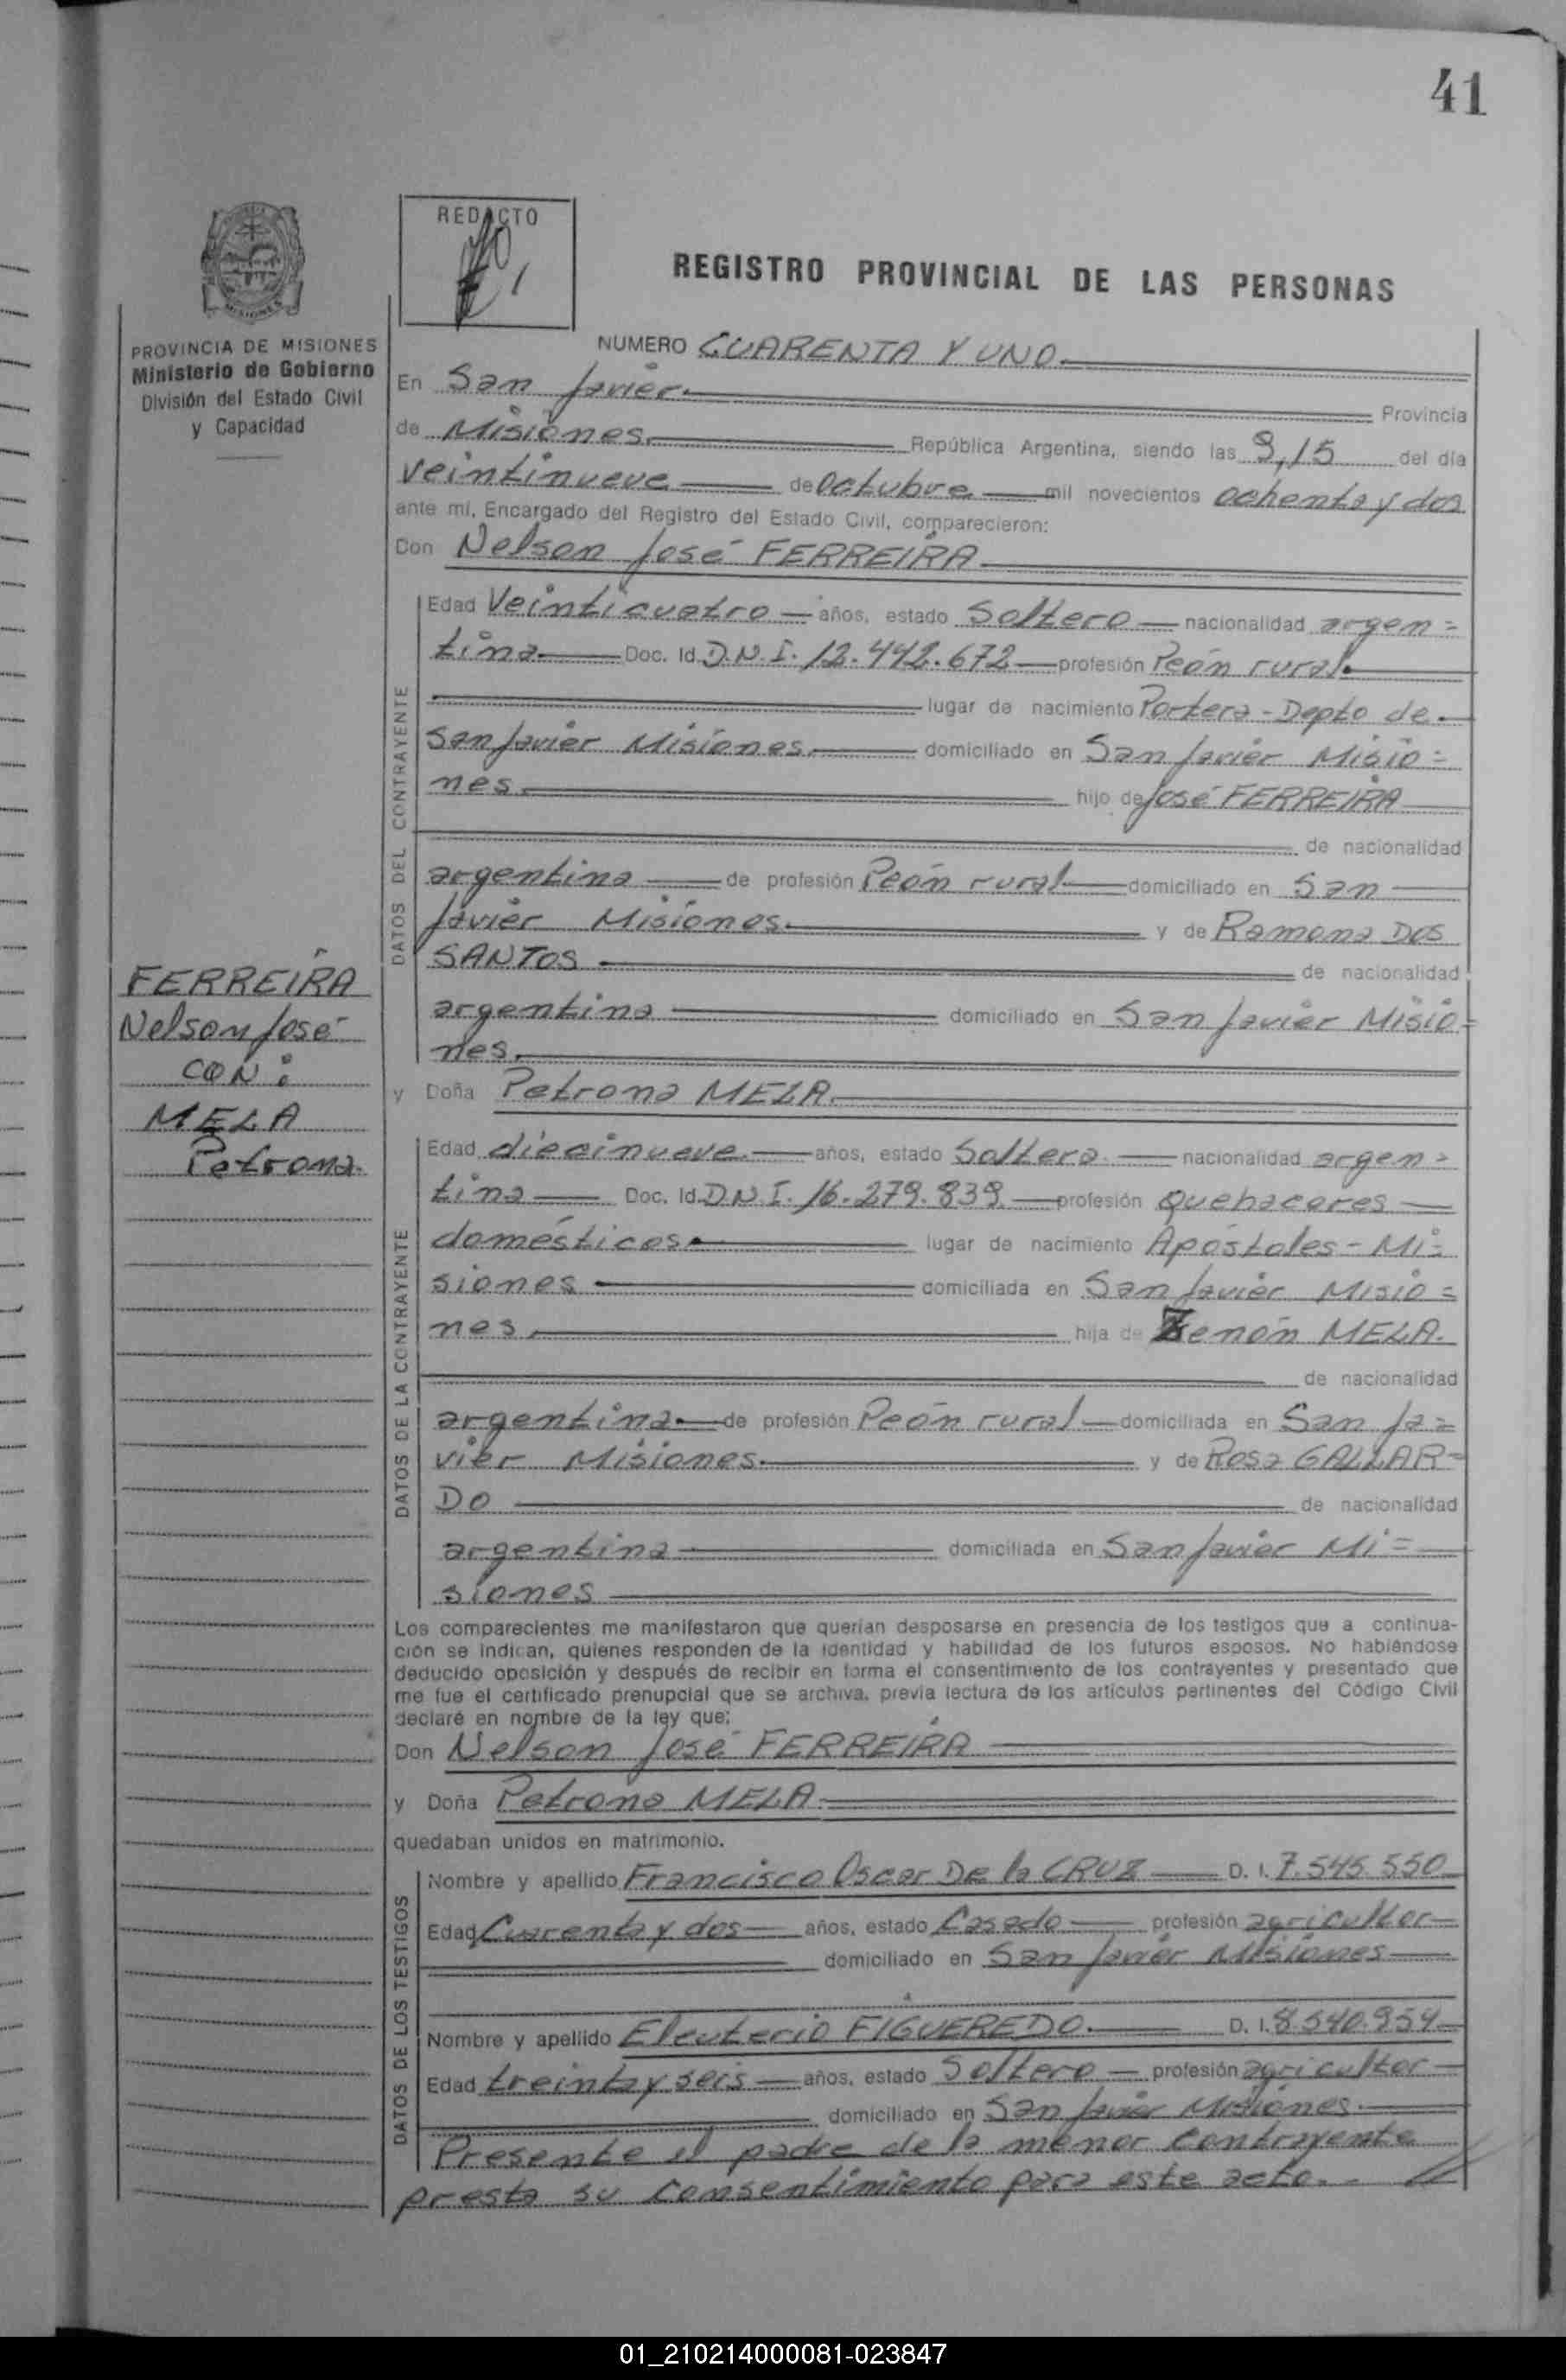 41
REDACTO
REGISTRO PROVINCIAL DE LAS PERSONAS
PROVINCIA DE MISIONES
Ministerio de Gobierno
División del Estado Civil
y Capacidad
NUMERO CUARENTA Y UNO.
En San Javier. Provincia
de Misiones. República Argentina, siendo las 9,15 del día
veintinueve de octubre mil novecientos ochenta y dos
ante mí, Encargado del Registro del Estado Civil, comparecieron:
Don Nelson José FERREIRA
DATOS DEL CONTRAYENTE
Edad Veinticuatro años, estado Soltero nacionalidad argen=
tina Doc. Id. D.N.I. 12.442.672 profesión Peón rural.
lugar de nacimiento Portera - Depto de
San Javier Misiones. domiciliado en San Javier Misio=
nes. hijo de José FERREIRA
de nacionalidad
argentina de profesión Peón rural domiciliado en San
Javier Misiones. y de Ramona DOS
SANTOS de nacionalidad
argentina domiciliado en San Javier Misio=
nes.
FERREIRA
Nelson José
CON:
MELA
Petrona.
y Doña Petrona MELA.
DATOS DE LA CONTRAYENTE
Edad diecinueve. años, estado Soltera nacionalidad argen=
tina Doc. Id. D.N.I. 16.279.839 profesión Quehaceres
domésticos. lugar de nacimiento Apóstoles - Mi=
siones domiciliada en San Javier Misio=
nes. hija de Zenón MELA.
de nacionalidad
argentina. de profesión Peón rural domiciliada en San Ja=
vier Misiones. y de Rosa GALLAR=
DO de nacionalidad
argentina domiciliada en San Javier Mi=
siones
Los comparecientes me manifestaron que querían desposarse en presencia de los testigos que a continua-
ción se indican, quienes responden de la identidad y habilidad de los futuros esposos. No habiéndose
deducido oposición y después de recibir en forma el consentimiento de los contrayentes y presentado que
me fue el certificado prenupcial que se archiva, previa lectura de los artículos pertinentes del Código Civil
declaré en nombre de la ley que:
Don Nelson José FERREIRA
y Doña Petrona MELA.
quedaban unidos en matrimonio.
DATOS DE LOS TESTIGOS
Nombre y apellido Francisco Oscar De la CRUZ D. I. 7.545.550
Edad Cuarenta y dos años, estado Casado profesión agricultor
domiciliado en San Javier Misiones
Nombre y apellido Eleuterio FIGUEREDO. D. I. 8.540.954
Edad treinta y seis años, estado Soltero profesión agricultor
domiciliado en San Javier Misiones.
Presente el padre de la menor contrayente
presta su consentimiento para este acto.
01_210214000081-023847